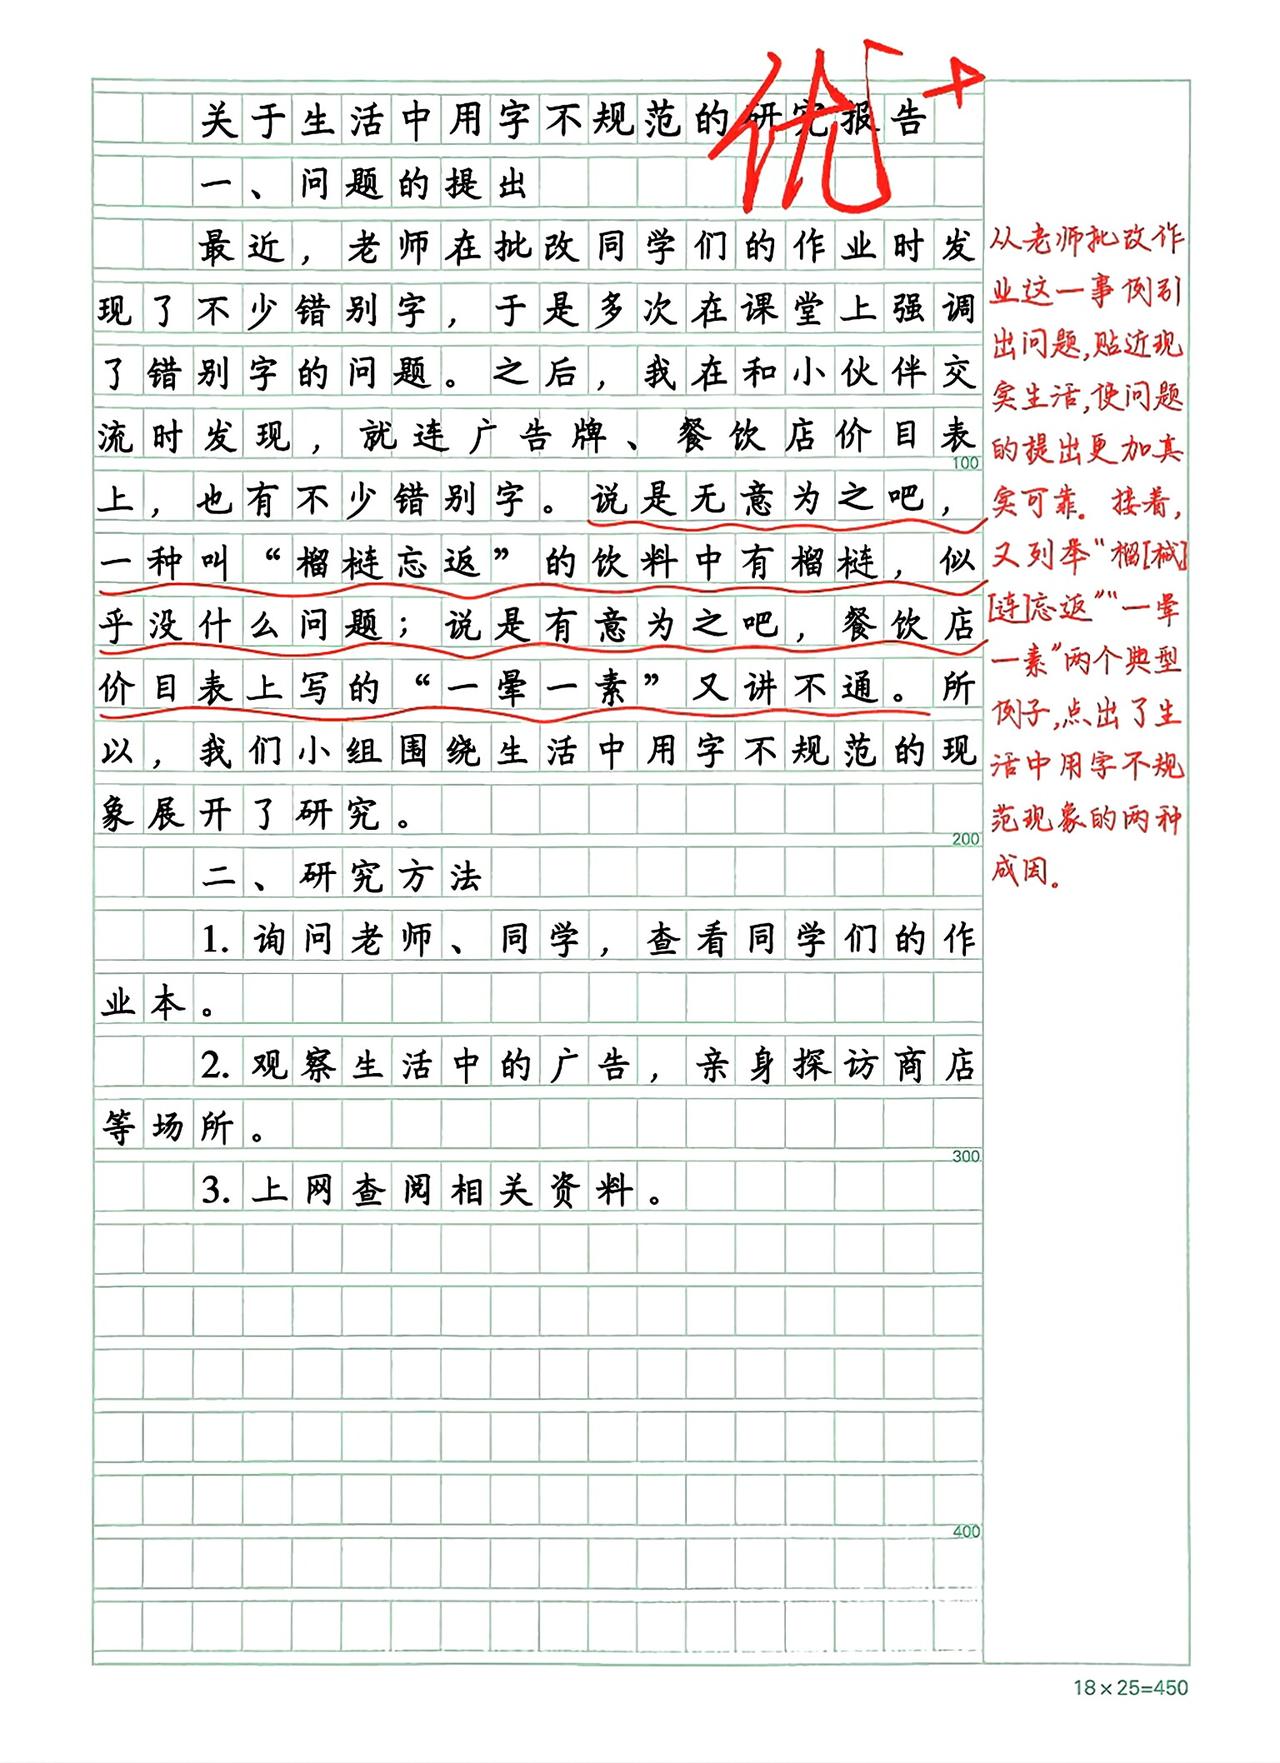 关于生活中用字不规范的研究报告
优+
一、问题的提出
最近，老师在批改同学们的作业时发
现了不少错别字，于是多次在课堂上强调
了错别字的问题。之后，我在和小伙伴交
流时发现，就连广告牌、餐饮店价目表
100
上，也有不少错别字。说是无意为之吧，
一种叫“榴梿忘返”的饮料中有榴梿，似
乎没什么问题；说是有意为之吧，餐饮店
价目表上写的“一晕一素”又讲不通。所
以，我们小组围绕生活中用字不规范的现
象展开了研究。
200
二、研究方法
1. 询问老师、同学，查看同学们的作
业本。
2. 观察生活中的广告，亲身探访商店
等场所。
300
3. 上网查阅相关资料。
400
从老师批改作
业这一事例引
出问题，贴近现
实生活，使问题
的提出更加真
实可靠。接着，
又列举“榴[梿]
[连]忘返”“一晕
一素”两个典型
例子，点出了生
活中用字不规
范现象的两种
成因。
18×25=450